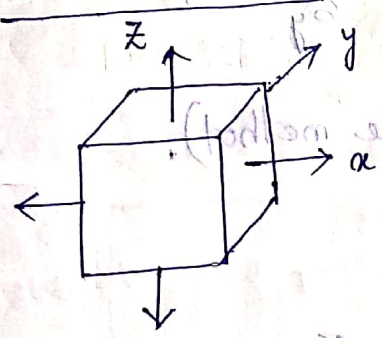 z
y
x